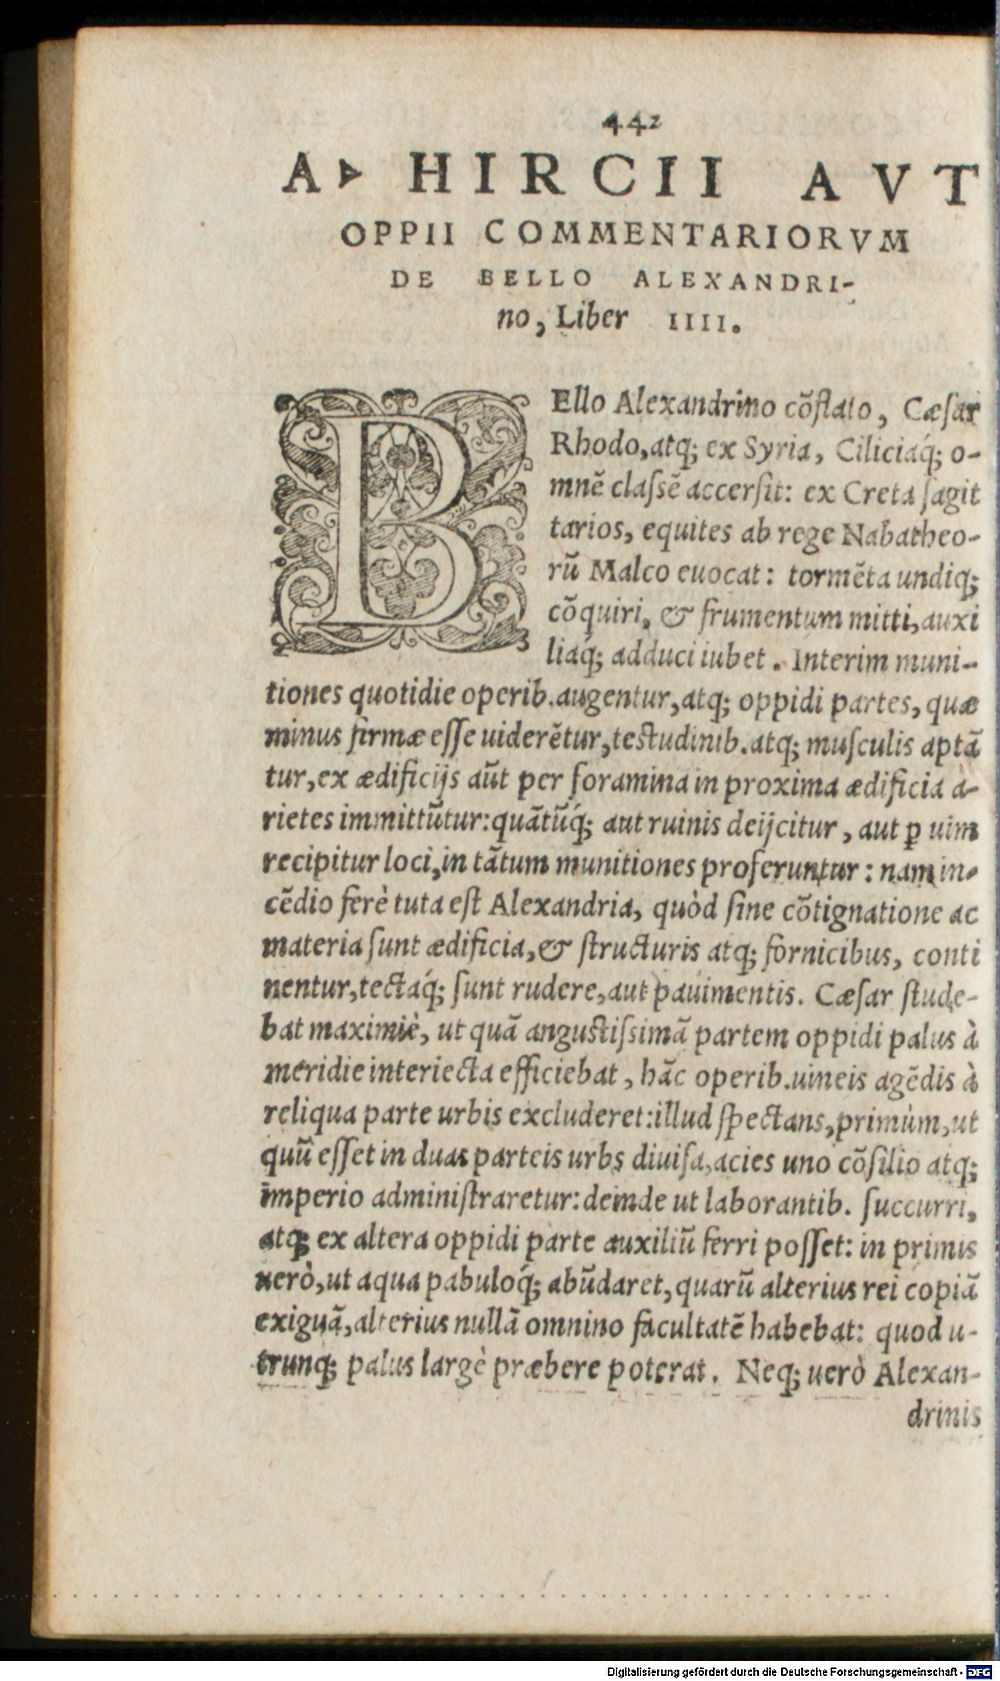 442
A▸ HIRCII AVT
OPPII COMMENTARIORVM
DE BELLO ALEXANDRI-
no, Liber IIII.
BEllo Alexandrino cõflato, Cæsar
Rhodo, atq; ex Syria, Ciliciaq́; o-
mnẽ classẽ accersit: ex Creta sagit
tarios, equites ab rege Nabatheo-
rũ Malco euocat: tormẽta undiq;
cõquiri, & frumentum mitti, auxi
liaq; adduci iubet. Interim muni-
tiones quotidie operib. augentur, atq; oppidi partes, quæ
minus firmæ esse uiderẽtur, testudinib. atq; musculis aptã
tur, ex ædificijs aũt per foramina in proxima ædificia a-
rietes immittũtur: quãtũq́; aut ruinis deijcitur, aut ꝑ uim
recipitur loci, in tãtum munitiones proferuntur: nam in-
cẽdio ferè tuta est Alexandria, quòd sine cõtignatione ac
materia sunt ædificia, & structuris atq; fornicibus, conti
nentur, tectaq́; sunt rudere, aut pauimentis. Cæsar stude-
bat maximè, ut quã angustissimã partem oppidi palus à
meridie interiecta efficiebat, hãc operib. uineis agẽdis à
reliqua parte urbis excluderet: illud spectans, primùm, ut
quũ esset in duas parteis urbs diuisa, acies uno cõsilio atq;
imperio administraretur: deinde ut laborantib. succurri,
atq; ex altera oppidi parte auxiliũ ferri posset: in primis
uerò, ut aqua pabuloq́; abũdaret, quarũ alterius rei copiã
exiguã, alterius nullã omnino facultatẽ habebat: quod u-
trunq; palus largè præbere poterat. Neq; uerò Alexan-
drinis
Digitalisierung gefördert durch die Deutsche Forschungsgemeinschaft - DFG